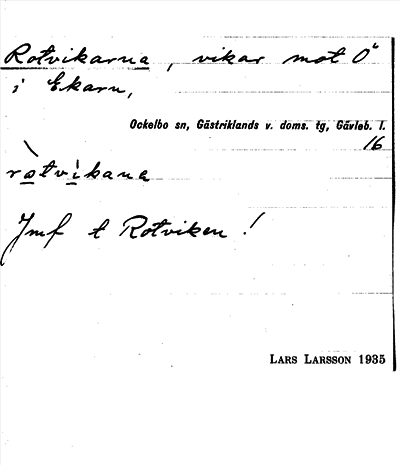 Rotvikarna, vikar mot Ö
i Ekarn,
Ockelbo sn, Gästriklands v. doms. tg, Gävleb. l.
16
ròtvikana
Jmf t Rotviken!
LARS LARSSON 1935